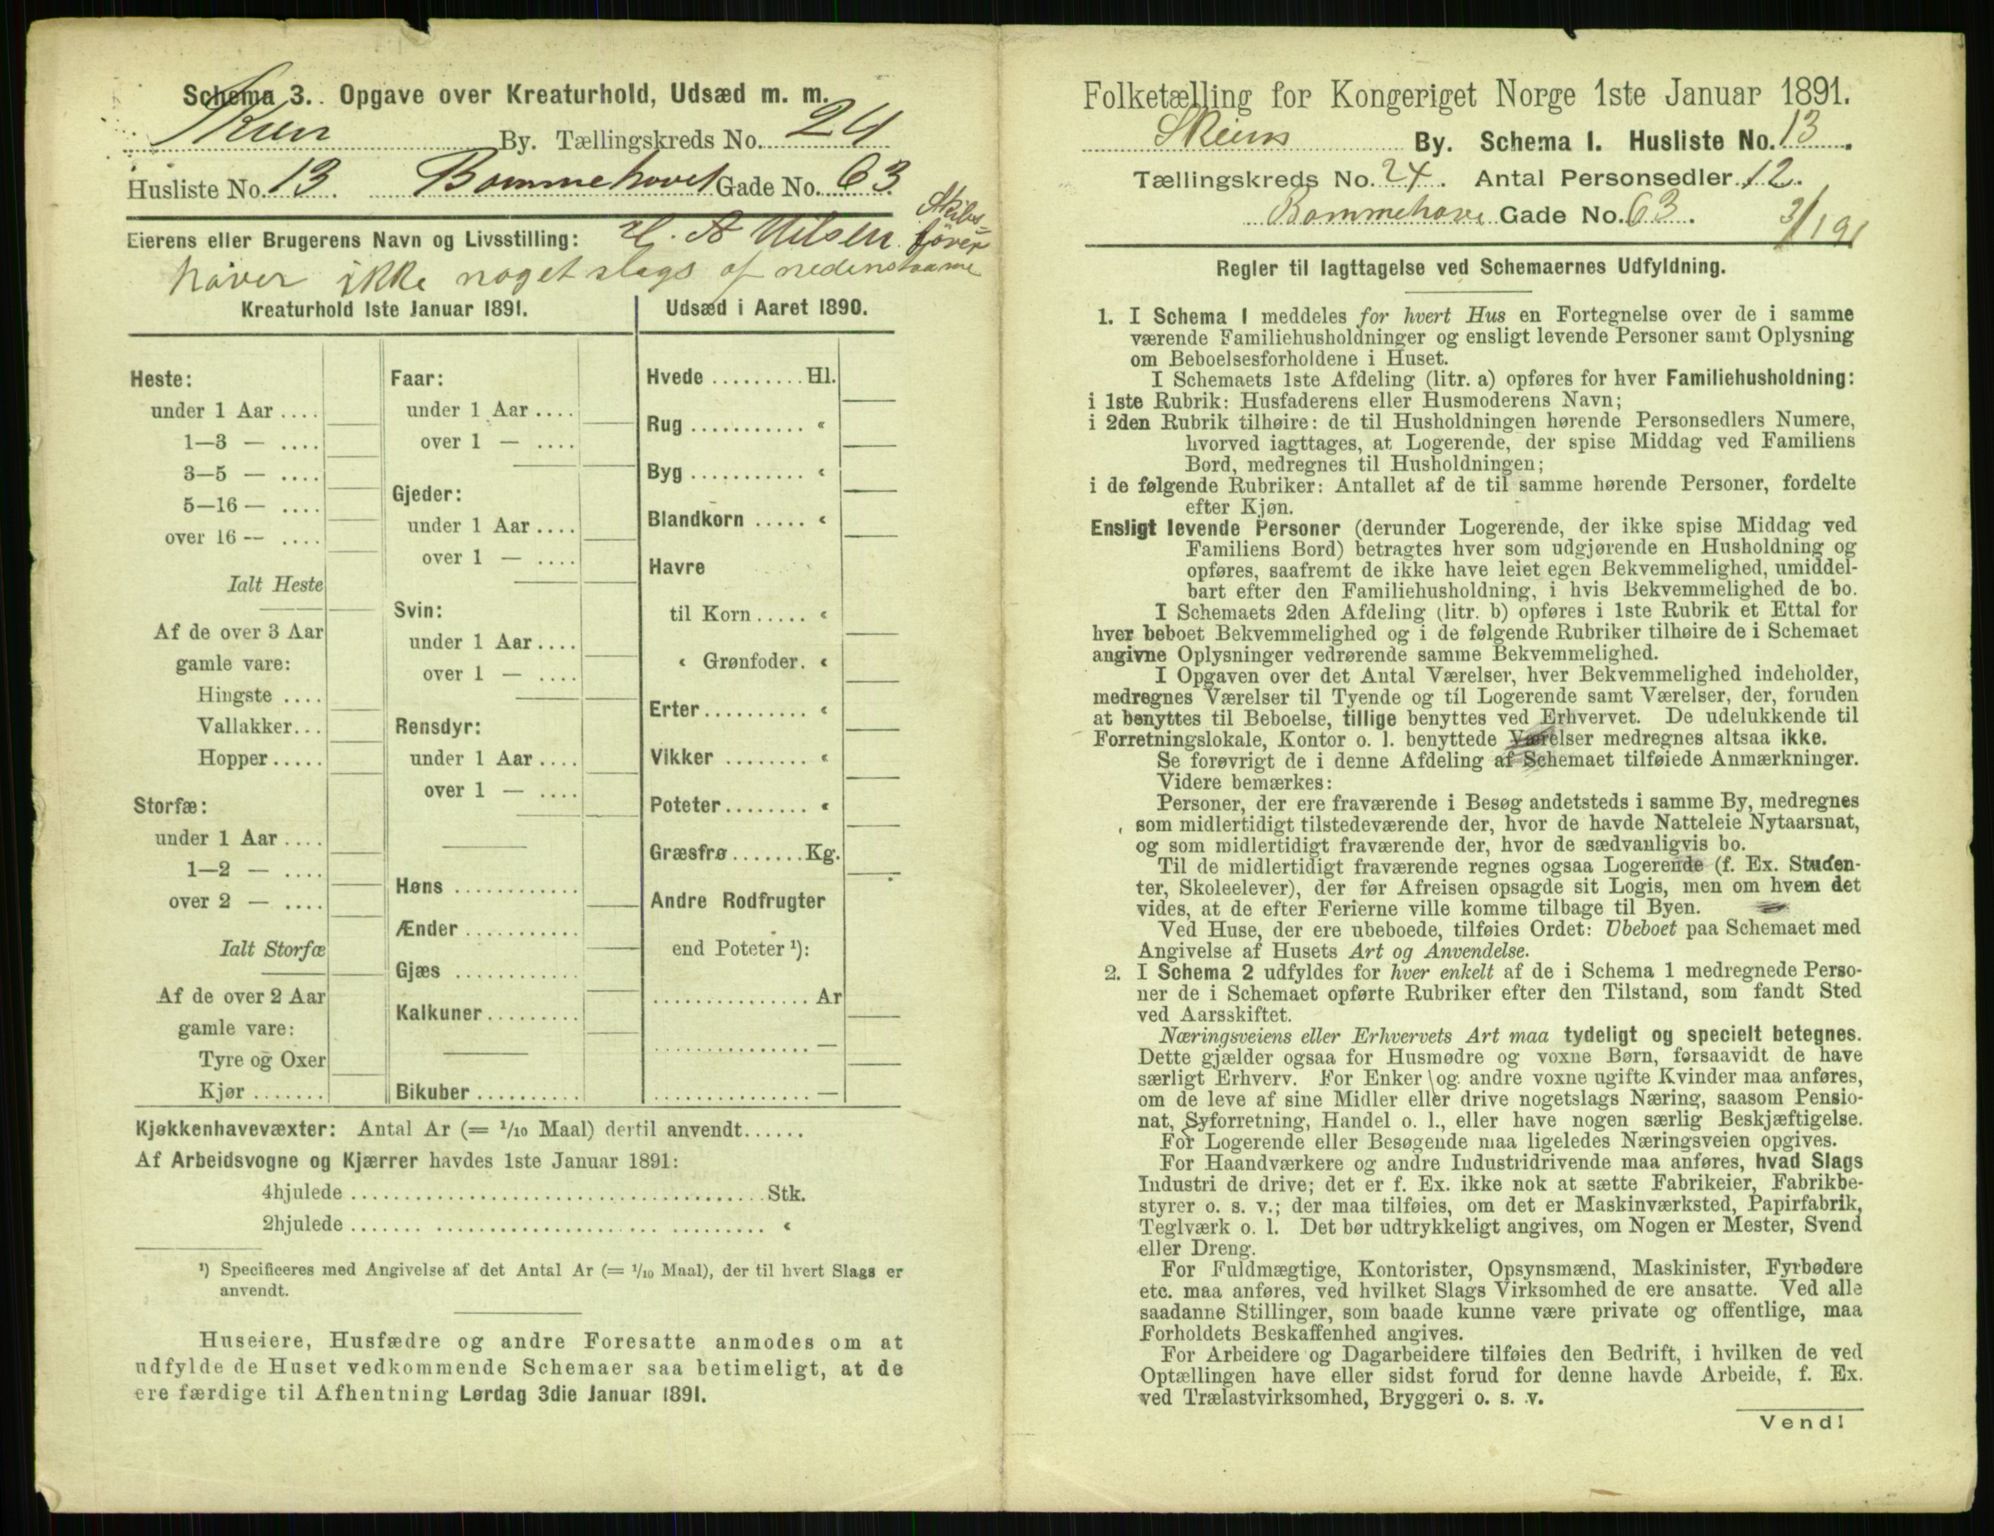 Schema 3. Opgave over Kreaturhold, Udsæd m. m.
Skien By. Tællingskreds No. 24
Husliste No. 13 Bommehovet Gade No. 63
Skibs=
Eierens eller Brugerens Navn og Livsstilling: A Nilsen fører
haver ikke noget slags af nedenstaaende
Kreaturhold 1ste Januar 1891.
Heste:
under 1 Aar ....
1—3 — ....
3—5 — ....
5—16 — ....
over 16 — ....
Ialt Heste
Af de over 3 Aar
gamle vare:
Hingste ....
Vallakker...
Hopper.....
Storfæ:
under 1 Aar ....
1—2 — ....
over 2 — ....
Ialt Storfæ
Af de over 2 Aar
gamle vare:
Tyre og Oxer
Kjør .......
Faar:
under 1 Aar ....
over 1 — ....
Gjeder:
under 1 Aar ....
over 1 — ....
Svin:
under 1 Aar ....
over 1 — ....
Rensdyr:
under 1 Aar ....
over 1 — ....
Høns ...........
Ænder ...........
Gjæs ...........
Kalkuner.........
Bikuber..........
Udsæd i Aaret 1890.
Hvede .........Hl.
Rug ........... «
Byg ........... «
Blandkorn ..... «
Havre
til Korn ..... «
« Grønfoder. «
Erter.......... «
Vikker ........ «
Poteter........ «
Græsfrø.......Kg.
Andre Rodfrugter
end Poteter ¹):
...............Ar
............... —
............... —
Kjøkkenhavevæxter: Antal Ar (= 1/10 Maal) dertil anvendt......
Af Arbeidsvogne og Kjærrer havdes 1ste Januar 1891:
4hjulede ........................................Stk.
2hjulede ........................................ «
¹) Specificeres med Angivelse af det Antal Ar (= 1/10 Maal), der til hvert Slags er
anvendt.
Huseiere, Husfædre og andre Foresatte anmodes om at
udfylde de Huset vedkommende Schemaer saa betimeligt, at de
ere færdige til Afhentning Lørdag 3die Januar 1891.
Folketælling for Kongeriget Norge 1ste Januar 1891.
Skiens By. Schema I. Husliste No. 13.
Tællingskreds No. 24. Antal Personsedler 12.
Bommehove Gade No. 63. 3/1 91
Regler til Iagttagelse ved Schemaernes Udfyldning.
1. I Schema I meddeles for hvert Hus en Fortegnelse over de i samme
værende Familiehusholdninger og ensligt levende Personer samt Oplysning
om Beboelsesforholdene i Huset.
I Schemaets 1ste Afdeling (litr. a) opføres for hver Familiehusholdning:
i 1ste Rubrik: Husfaderens eller Husmoderens Navn;
i 2den Rubrik tilhøire: de til Husholdningen hørende Personsedlers Numere,
hvorved iagttages, at Logerende, der spise Middag ved Familiens
Bord, medregnes til Husholdningen;
i de følgende Rubriker: Antallet af de til samme hørende Personer, fordelte
efter Kjøn.
Ensligt levende Personer (derunder Logerende, der ikke spise Middag ved
Familiens Bord) betragtes hver som udgjørende en Husholdning og
opføres, saafremt de ikke have leiet egen Bekvemmelighed, umiddel-
bart efter den Familiehusholdning, i hvis Bekvemmelighed de bo.
I Schemaets 2den Afdeling (litr. b) opføres i 1ste Rubrik et Ettal for
hver beboet Bekvemmelighed og i de følgende Rubriker tilhøire de i Schemaet
angivne Oplysninger vedrørende samme Bekvemmelighed.
I Opgaven over det Antal Værelser, hver Bekvemmelighed indeholder,
medregnes Værelser til Tyende og til Logerende samt Værelser, der, foruden
at benyttes til Beboelse, tillige benyttes ved Erhvervet. De udelukkende til
Forretningslokale, Kontor o. l. benyttede Værelser medregnes altsaa ikke.
Se forøvrigt de i denne Afdeling af Schemaet tilføiede Anmærkninger.
Videre bemærkes:
Personer, der ere fraværende i Besøg andetsteds i samme By, medregnes
som midlertidigt tilstedeværende der, hvor de havde Natteleie Nytaarsnat,
og som midlertidigt fraværende der, hvor de sædvanligvis bo.
Til de midlertidigt fraværende regnes ogsaa Logerende (f. Ex. Studen-
ter, Skoleelever), der før Afreisen opsagde sit Logis, men om hvem det
vides, at de efter Ferierne ville komme tilbage til Byen.
Ved Huse, der ere ubeboede, tilføies Ordet: Ubeboet paa Schemaet med
Angivelse af Husets Art og Anvendelse.
2. I Schema 2 udfyldes for hver enkelt af de i Schema 1 medregnede Perso-
ner de i Schemaet opførte Rubriker efter den Tilstand, som fandt Sted
ved Aarsskiftet.
Næringsveiens eller Erhvervets Art maa tydeligt og specielt betegnes.
Dette gjælder ogsaa for Husmødre og voxne Børn, forsaavidt de have
særligt Erhverv. For Enker og andre voxne ugifte Kvinder maa anføres,
om de leve af sine Midler eller drive nogetslags Næring, saasom Pensio-
nat, Syforretning, Handel o. l., eller have nogen særlig Beskjæftigelse.
For Logerende eller Besøgende maa ligeledes Næringsveien opgives.
For Haandværkere og andre Industridrivende maa anføres, hvad Slags
Industri de drive; det er f. Ex. ikke nok at sætte Fabrikeier, Fabrikbe-
styrer o. s. v.; der maa tilføies, om det er Maskinværksted, Papirfabrik,
Teglværk o. l. Det bør udtrykkeligt angives, om Nogen er Mester, Svend
eller Dreng.
For Fuldmægtige, Kontorister, Opsynsmænd, Maskinister, Fyrbødere
etc. maa anføres, ved hvilket Slags Virksomhed de ere ansatte. Ved alle
saadanne Stillinger, som baade kunne være private og offentlige, maa
Forholdets Beskaffenhed angives.
For Arbeidere og Dagarbeidere tilføies den Bedrift, i hvilken de ved
Optællingen have eller sidst forud for denne havde Arbeide, f. Ex.
ved Trælastvirksomhed, Bryggeri o. s. v.
Vend!